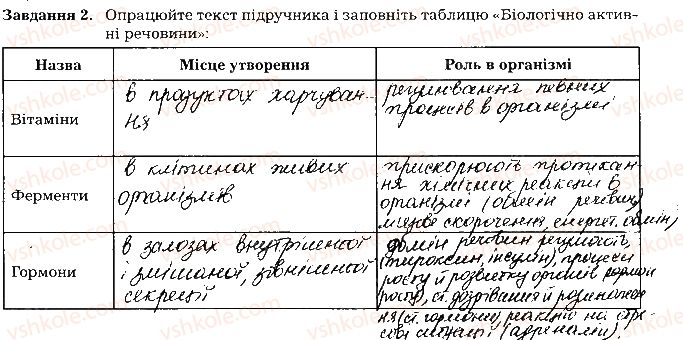 Завдання 2. Опрацюйте текст підручника і заповніть таблицю «Біологічно актив-
ні речовини»:
Назва
Місце утворення
Роль в організмі
Вітаміни
в продуктах харчуван-
ня
регулювання певних
процесів в організмі
Ферменти
в клітинах живих
організмів
прискорюють протікан-
ня хімічних реакцій в
організмі (обмін речовин,
м'язове скорочення, енергет. обмін)
Гормони
в залозах внутрішньої
і змішаної, зовнішньої
секреції
обмін речовин регулюють
(тироксин, інсулін), процеси
росту й розвитку органів гормон
росту), ст. дозрівання й розмножен-
ня (ст. гормони), реакцію на стре-
сові ситуації (адреналін).
vshkole.com